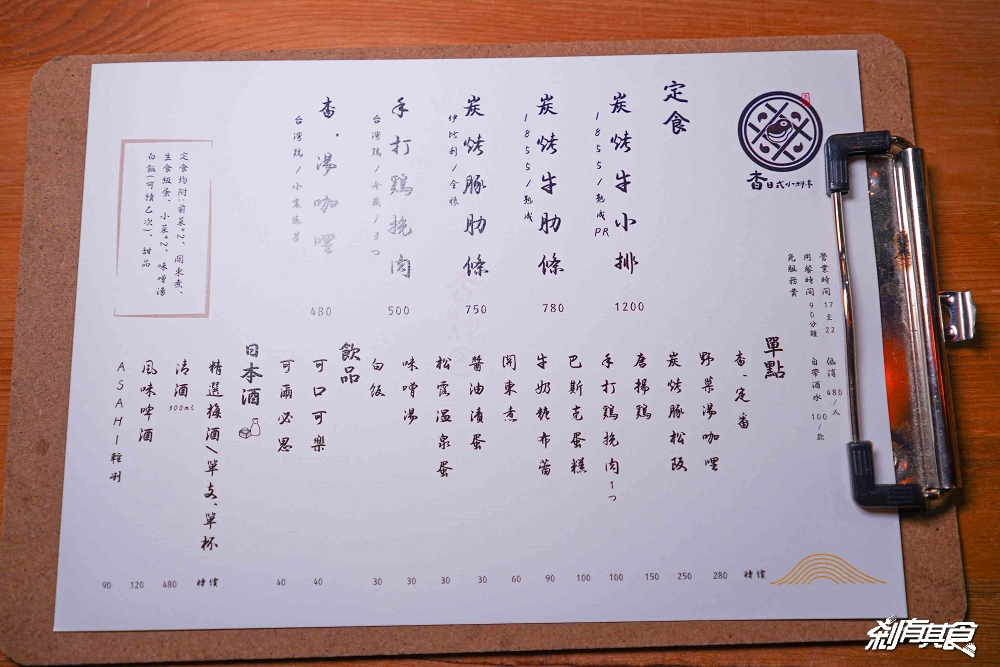 杳日式小料亭
營業時間 17至22
用餐時間 90分鐘
免服務費
低消 480/人
自帶酒水 100/款
定食
炭烤牛小排
1855/熟成PR
1200
炭烤牛肋條
1855/熟成
780
炭烤豚肋條
伊比利/合桃
750
手打鶏挽肉
台灣鶏/冷藏/3つ
500
杳·湯咖哩
台灣鶏/小農蔬菜
480
定食均附:前菜*2、關東煮、
生食級蛋、小菜*2、味噌湯
白飯(可續乙次)、甜品
單點
杳·定番 時價
野菜湯咖哩 280
炭烤豚松阪 250
唐揚鶏 150
手打鶏挽肉1つ 100
巴斯克蛋糕 100
牛奶糖布蕾 90
關東煮 60
醬油漬蛋 30
松露溫泉蛋 30
味噌湯 30
白飯 30
飲品
可口可樂 40
可爾必思 40
日本酒
精選梅酒/單支、單杯 時價
清酒300ml 480
風味啤酒 120
ASAHI輕冽 90
剎有其食